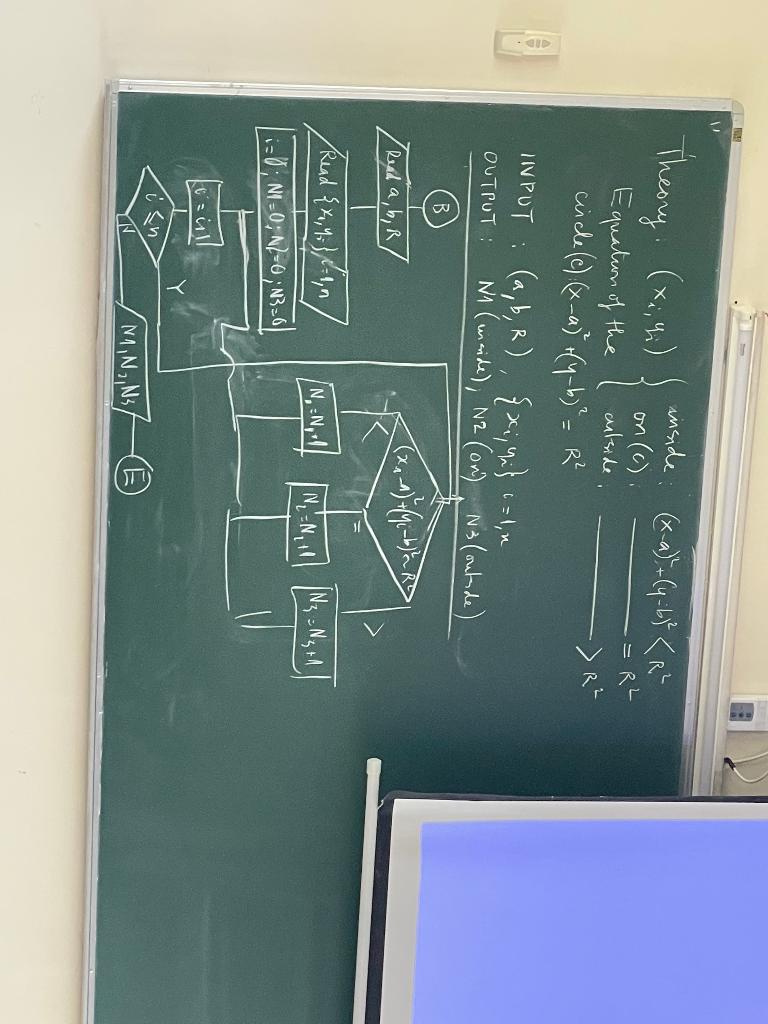 Theory: (xi, yi) { inside: (x-a)² + (y-b)² < R²
Equation of the { on (c): ——— = R²
outside: ——— > R²
circle (c) (x-a)² + (y-b)² = R²
INPUT : (a, b, R), {xi, yi} i=1,n
OUTPUT : N1 (inside), N2 (on) N3 (outside)
B
Read a, b, R
Read {xi, yi} i=1,n
i=0; N1=0; N2=0; N3=0
i = i+1
i ≤ n
Y
N
(xi-a)² + (yi-b)² ~ R²
<
=
>
N1=N1+1
N2=N2+1
N3=N3+1
N1, N2, N3
E